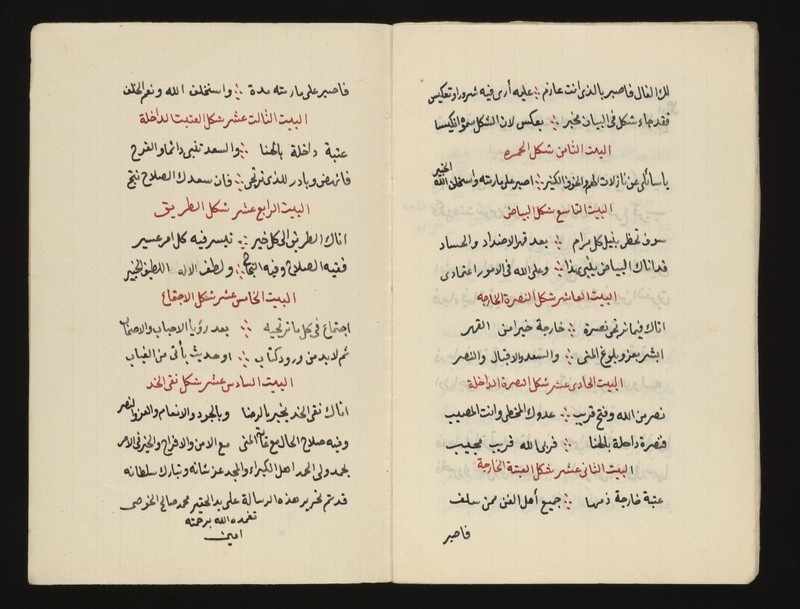 لك الفال فاصبر بالذى انت عازم ∴ عليه أرى فيه شرورا وتعكيس
فقد جاء شكل فى البيان مخبر ∴ بعكس لان الشكل سموا انكيسا
البيت الثامن شكل الحمره
يا سائلى عن نازلات الهم والحزن الكثير ∴ اصبر على مارشته واستخلف الله الخبير
البيت التاسع شكل البياض
سوف تحظى بنيل كل مرام ∴ بعد قهر الاضداد والحساد
قد اتاك البياض ينبى بهذا ∴ وعلى الله فى الامور اعتمادى
البيت العاشر شكل النصرة الخارجه
اتاك فيما ترتجى نصرة ∴ خارجة خير امن القهر
ابشر بعز وبلوغ المنى ∴ والسعد والاقبال والنصر
البيت الحادى عشر شكل النصرة الداخلة
نصر من الله وفتح قريب ∴ عدوك المخطى وانت المصيب
فنصرة داخلة بالهنا ∴ فربى الله قريب مجيب
البيت الثانى عشر شكل العتبة الخارجة
عتبة خارجة ذمها ∴ جميع أهل الفن ممن سلف
فاصبر
فاصبر على مارشته مدة ∴ واستخلف الله ونعم الخلف
البيت الثالث عشر شكل العتبت الداخلة
عتبة داخلة بالهنا ∴ والسعد تنبى دائما والفرح
فانهض وبادر للذى ترتجى ∴ فان سعدك الصلاح نتج
البيت الرابع عشر شكل الطريق
اتاك الطريق الى كل خير ∴ تيسر فيه كل امر عسير
ففيه الصلاح وفيه النجاح ∴ ولطف الاله اللطيف الخبير
البيت الخامس عشر شكل الاجتماع
اجتماع فى كل ما ترتجيه ∴ بعد رؤيا الاحباب والاصحاب
ثم لابد من ورود كتاب ∴ او حديث يأتى من الغياب
البيت السادس عشر شكل نقى الخد
اتاك نقى الخد يخبر بالرضا وبالجود والانعام والعز والنصر
وفيه صلاح الحال مع غاية المنى مع الامن والافراح والخير فى الامر
بحمد ولى الحمد اهل الكبراء والمجد عز شانه وتبارك سلطانه
قد تم تحرير هذه الرسالة على يد الحقير محمد صالح
تغمده الله برحمته
امين